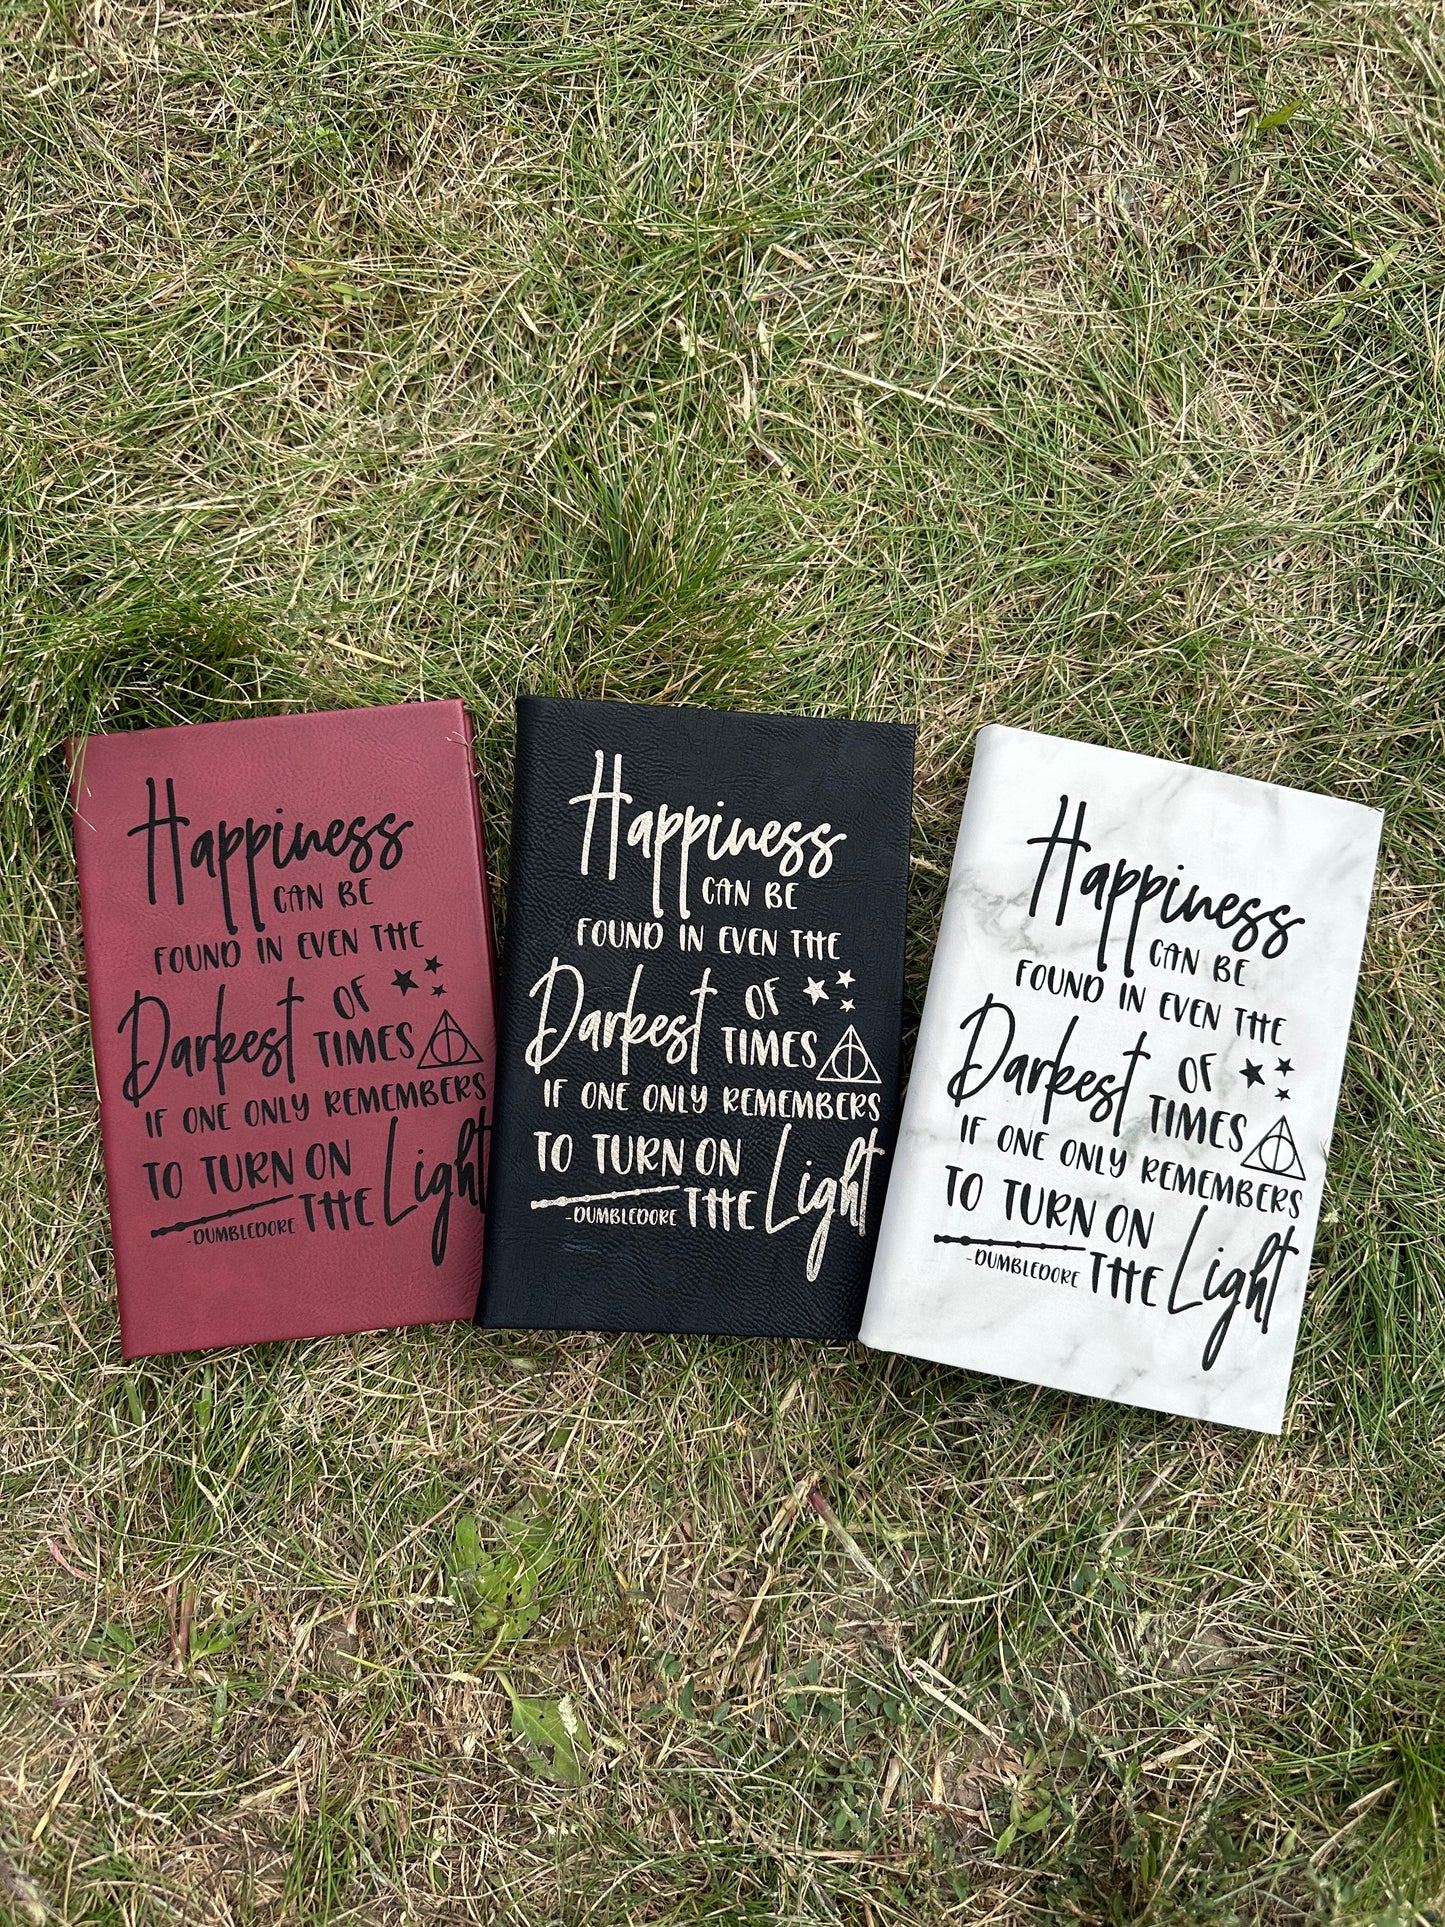 Happiness
CAN BE
FOUND IN EVEN THE
Darkest OF
TIMES
IF ONE ONLY REMEMBERS
TO TURN ON
THE Light
-DUMBLEDORE
Happiness
CAN BE
FOUND IN EVEN THE
Darkest OF
TIMES
IF ONE ONLY REMEMBERS
TO TURN ON
THE Light
-DUMBLEDORE
Happiness
CAN BE
FOUND IN EVEN THE
Darkest OF
TIMES
IF ONE ONLY REMEMBERS
TO TURN ON
THE Light
-DUMBLEDORE